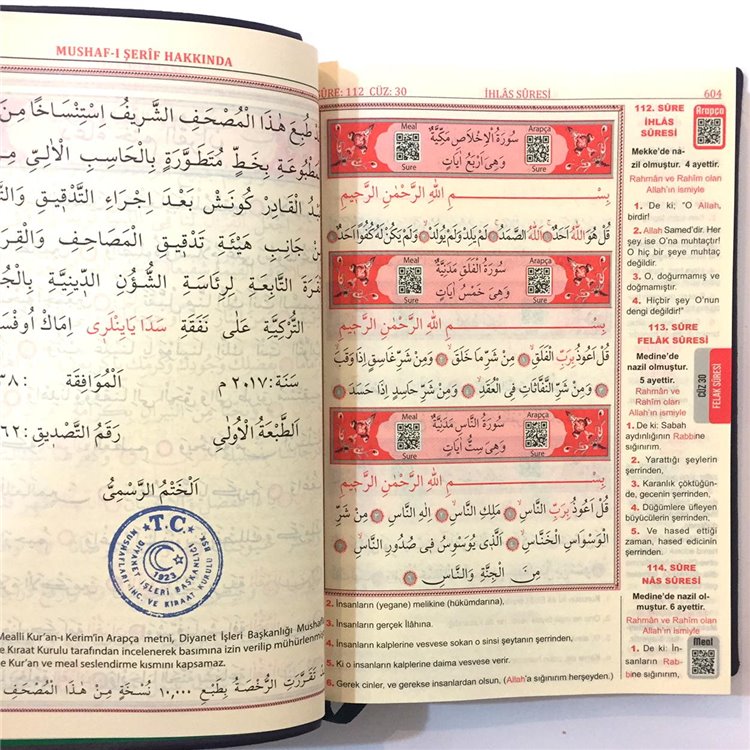 MUSHAF-I ŞERÎF HAKKINDA
طُبِعَ هٰذَا الْمُصْحَفِ الشَّرِيفُ اِسْتِنْسَاخًا مِنْ
بِخَطٍّ مُتَطَوِّرَةٍ بِالْحَاسِبِ الْاٰلِيِّ
الْقَادِرِ كُونَشْ بَعْدَ اِجْرَاءِ التَّدْقِيقِ
جَانِبِ هَيْئَةِ تَدْقِيقِ الْمَصَاحِفِ
التَّابِعَةِ لِرِئَاسَةِ الشُّؤُنِ الدِّينِيَّةِ
التُّرْكِيَّةِ عَلٰى نَفَقَةِ سَدَا يَايِنْلَرِى
سَنَة: ٢٠١٧ م الْمُوَافِقَة
اَلطَّبْعَةُ الْاُولٰى رَقَمُ التَّصْدِيقِ:
اَلْخَتْمُ الرَّسْمِىُّ
T.C.
DİYANET İŞLERİ BAŞKANLIĞI
1923
Mealli Kur'an-ı Kerim'in Arapça metni, Diyanet İşleri Başkanlığı
Kıraat Kurulu tarafından incelenerek basımına izin verilip
Kur'an ve meal seslendirme kısmını kapsamaz.
تَقَرَّرَتِ الرُّخْصَةُ بِطَبْعِ ١٠,٠٠٠ نُسْخَةٍ مِنْ هٰذَا
SÛRE: 112 CÜZ: 30 İHLÂS SÛRESİ 604
Meal
Sure
سُورَةُ الْاِخْلَاصِ مَكِّيَّةٌ
وَهِىَ اَرْبَعُ اٰيَاتٍ
Arapça
Sure
بِسْمِ اللّٰهِ الرَّحْمٰنِ الرَّحِيمِ
قُلْ هُوَ اللّٰهُ اَحَدٌ اَللّٰهُ الصَّمَدُ لَمْ يَلِدْ وَلَمْ يُولَدْ وَلَمْ يَكُنْ لَهُ كُفُوًا اَحَدٌ
Meal
Sure
سُورَةُ الْفَلَقِ مَدَنِيَّةٌ
وَهِىَ خَمْسُ اٰيَاتٍ
Arapça
Sure
بِسْمِ اللّٰهِ الرَّحْمٰنِ الرَّحِيمِ
قُلْ اَعُوذُ بِرَبِّ الْفَلَقِ مِنْ شَرِّ مَا خَلَقَ وَمِنْ شَرِّ غَاسِقٍ اِذَا وَقَبَ
وَمِنْ شَرِّ النَّفَّاثَاتِ فِى الْعُقَدِ وَمِنْ شَرِّ حَاسِدٍ اِذَا حَسَدَ
Meal
Sure
سُورَةُ النَّاسِ مَدَنِيَّةٌ
وَهِىَ سِتُّ اٰيَاتٍ
Arapça
Sure
بِسْمِ اللّٰهِ الرَّحْمٰنِ الرَّحِيمِ
قُلْ اَعُوذُ بِرَبِّ النَّاسِ مَلِكِ النَّاسِ اِلٰهِ النَّاسِ مِنْ شَرِّ
الْوَسْوَاسِ الْخَنَّاسِ اَلَّذِى يُوَسْوِسُ فِى صُدُورِ النَّاسِ
مِنَ الْجِنَّةِ وَالنَّاسِ
2. İnsanların (yegane) melikine (hükümdarına),
3. İnsanların gerçek İlâhına.
4. İnsanların kalplerine vesvese sokan o sinsi şeytanın şerrinden,
5. Ki o insanların kalplerine daima vesvese verir.
6. Gerek cinler, ve gerekse insanlardan olsun, (Allah'a sığınırım herşeyden.)
112. SÛRE
İHLÂS
SÛRESİ
Arapça
Mekke'de nâ-
zil olmuştur. 4 ayettir.
Rahmân ve Rahîm olan
Allah'ın ismiyle
1. De ki; "O Allah,
birdir!
2. Allah Samed'dir. Her
şey ise O'na muhtaçtır!
O hiç bir şeye muhtaç
değildir.
3. O, doğurmamış ve
doğmamıştır.
4. Hiçbir şey O'nun
dengi değildir!"
113. SÛRE
FELÂK SÛRESİ
Medine'de
nazil olmuştur.
5 ayettir.
Rahmân ve
Rahîm olan
Allah'ın ismiyle
1. De ki: Sabah
aydınlığının Rabbine
sığınırım.
2. Yarattığı şeylerin
şerrinden,
3. Karanlık çöktüğün-
de, gecenin şerrinden,
4. Düğümlere üfleyen
büyücülerin şerrinden,
5. Ve hased ettiği
zaman, hased edicinin
şerrinden.
CÜZ 30
FELÂK SÛRESİ
114. SÛRE
NÂS SÛRESİ
Medine'de nazil ol-
muştur. 6 ayettir.
Rahmân ve Rahîm olan
Allah'ın ismiyle
1. De ki: İn-
sanların Rab-
bine sığınırım,
Meal